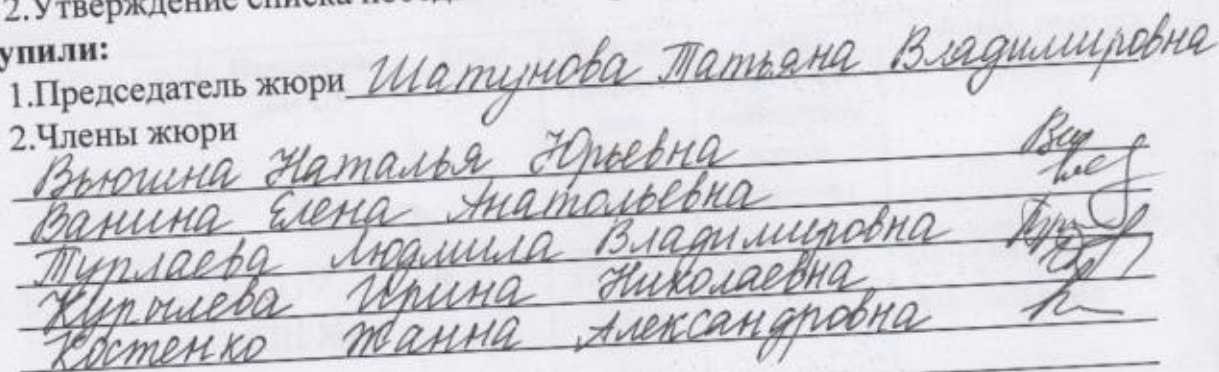 2.Утверждение списка
упили:
1.Председатель жюри Шатунова Татьяна Владимировна
2.Члены жюри
Вьюшина Наталья Юрьевна
Ванина Елена Анатольевна
Турлаева Людмила Владимировна
Курылева Ирина Николаевна
Костенко Жанна Александровна